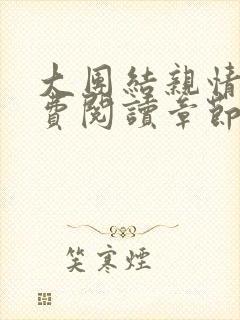 大團結親情
費閱讀章節
笑寒煙